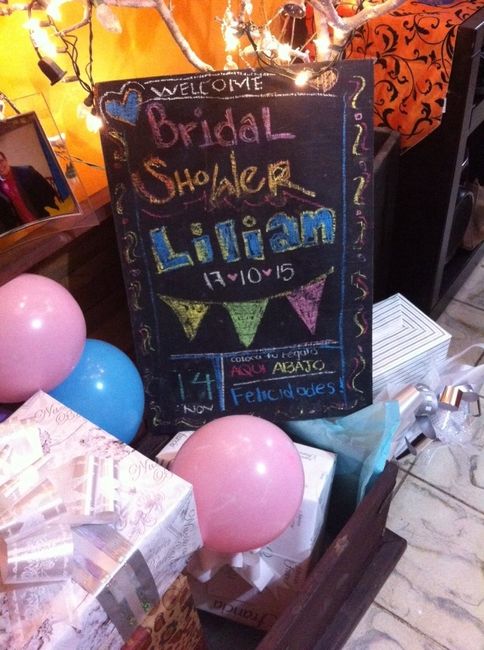 WELCOME
Bridal
SHOWER
Lilian
17♥10♥15
14
NOV
coloca tu regalo
AQUI ABAJO
Felicidades!